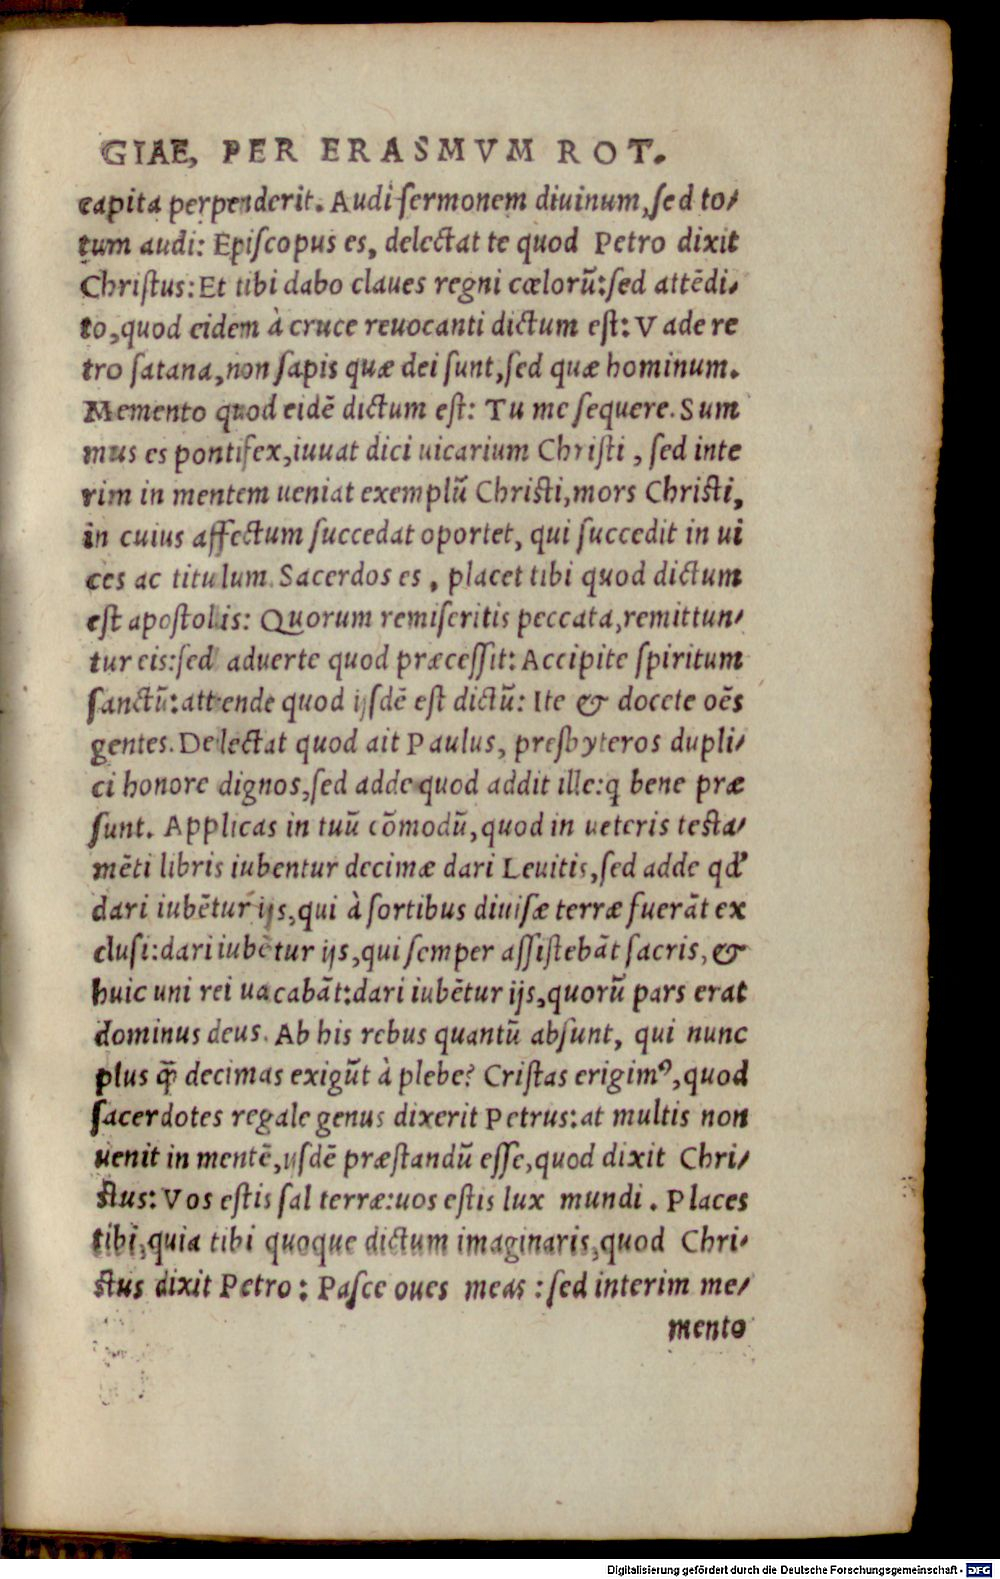 GIAE, PER ERASMVM ROT.
capita perpenderit. Audi sermonem diuinum, sed to/
tum audi: Episcopus es, delectat te quod Petro dixit
Christus: Et tibi dabo claues regni cœlorū: sed attēdi/
to, quod eidem à cruce reuocanti dictum est: Vade re
tro satana, non sapis quæ dei sunt, sed quæ hominum.
Memento quod eidē dictum est: Tu me sequere. Sum
mus es pontifex, iuuat dici uicarium Christi, sed inte
rim in mentem ueniat exemplū Christi, mors Christi,
in cuius affectum succedat oportet, qui succedit in ui
ces ac titulum. Sacerdos es, placet tibi quod dictum
est apostolis: Quorum remiseritis peccata, remittun/
tur eis: sed aduerte quod præcessit: Accipite spiritum
sanctū: attende quod ijsdē est dictū: Ite & docete oēs
gentes. Delectat quod ait Paulus, presbyteros dupli/
ci honore dignos, sed adde quod addit ille: q bene præ
sunt. Applicas in tuū cōmodū, quod in ueteris testa/
mēti libris iubentur decimæ dari Leuitis, sed adde qd'
dari iubētur ijs, qui à sortibus diuisæ terræ fuerāt ex
clusi: dari iubētur ijs, qui semper assistebāt sacris, &
huic uni rei uacabāt: dari iubētur ijs, quorū pars erat
dominus deus. Ab his rebus quantū absunt, qui nunc
plus q̄ decimas exigūt à plebe? Cristas erigimꝰ, quod
sacerdotes regale genus dixerit Petrus: at multis non
uenit in mentē, ijsdē præstandū esse, quod dixit Chri/
stus: Vos estis sal terræ: uos estis lux mundi. Places
tibi, quia tibi quoque dictum imaginaris, quod Chri/
stus dixit Petro: Pasce oues meas: sed interim me/
mento
Digitalisierung gefördert durch die Deutsche Forschungsgemeinschaft - DFG